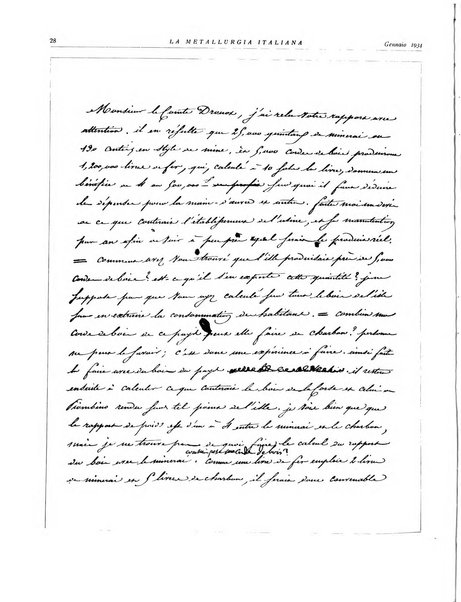 28
LA METALLURGIA ITALIANA
Gennaio 1934
Monsieur le Comte Drouot, j'ai relu votre rapport avec
attention, il en résulte que 25,000 quintaux de minerai ou
120 en style de mine, et 5,000 corde de bois produiront
1,200,000 livre de fer, qui, calculé à 10 sols la livre, donnent un
bénéfice de 500,000 sur quoi il faut déduire
les dépenses pour la main d'œuvre et autre. faite moi un devis
de ce que coutrait l'établissement de l'usine, et sa manutention
pour au afin de voir à peu près quel serait le produit réel.
= comment avez vous trouvé que l'isle produisait près de 5,000
corde de bois? est ce qu'il s'en exporte cette quantité? je ne
suppose pas que vous ayez calculé sur tous le bois de l'isle
sans en extraire la consommation des habitans. = combien une
corde de bois de ce pays peut elle faire de charbon? personne
ne peut le savoir; c'est donc une expérience à faire. ainsi faite
le faire avec du bois du pays il reste
ensuite à calculer ce que coutrait le bois de la Corse et celui de
Piombino rendu sur tel point de l'isle, je vois bien que que
le rapport de poids est d'un à 4 entre le minerai et le charbon,
mais je ne trouve pas de quoi faire le calcul du rapport
du bois avec le minerai. comme une livre de fer emploie 2 livre
de minerai et 5 livre de charbon, il serait donc convenable